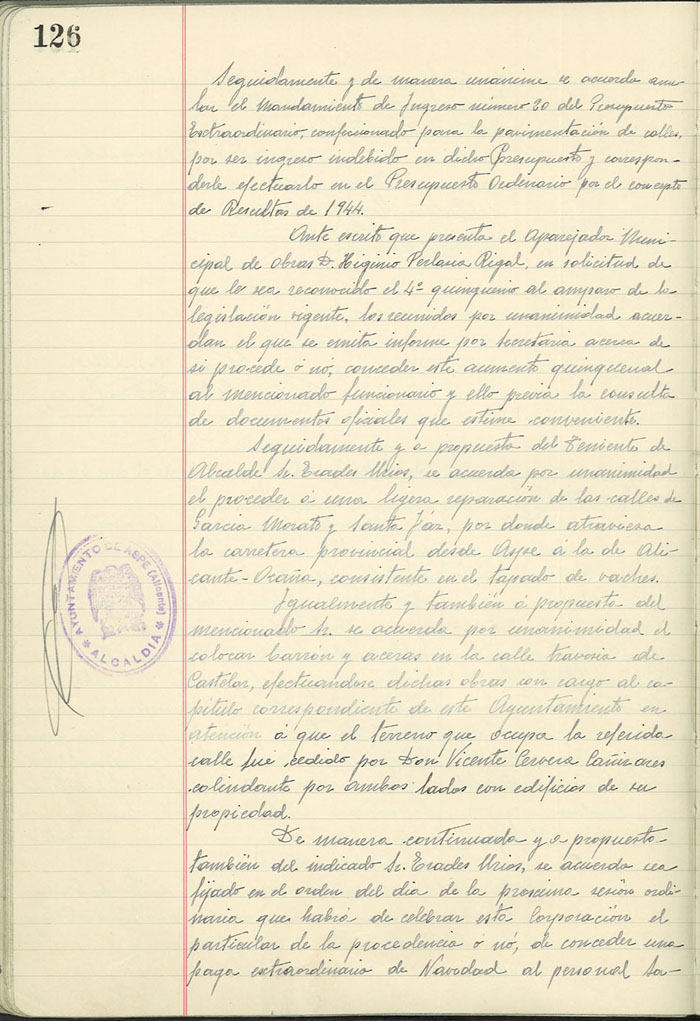 126
Seguidamente y de manera unánime se acuerda anu-
lar el Mandamiento de Ingreso número 20 del Presupuesto
Extraordinario, confeccionado para la pavimentación de calles,
por ser ingreso indebido en dicho Presupuesto y correspon-
derle efectuarlo en el Presupuesto Ordinario por el concepto
de Resultas de 1944.
Ante escrito que presenta el Aparejador Muni-
cipal de Obras D. Higinio Perlasia Rigal, en solicitud de
que le sea reconocido el 4º quinquenio al amparo de la
legislación vigente, los reunidos por unanimidad acuer-
dan el que se emita informe por Secretaría acerca de
si procede ó nó, conceder este aumento quinquenal
al mencionado funcionario y ello previa la consulta
de documentos oficiales que estime conveniente.
Seguidamente y a propuesta del Teniente de
Alcalde Sr. Erades Urios, se acuerda por unanimidad
el proceder á una ligera reparación de las calles de
Garcia Morato y Santa Fáz, por donde atraviesa
la carretera provincial desde Aspe á la de Ali-
cante-Ocaña, consistente en el tapado de vaches.
Igualmente y también á propuesta del
mencionado Sr. se acuerda por unanimidad el
colocar barrón y aceras en la calle travesia de
Castelar, efectuandose dichas obras con cargo al ca-
pítulo correspondiente de este Ayuntamiento en
atención á que el terreno que ocupa la referida
calle fué cedido por Don Vicente Cervera Cañizares
colindante por ambos lados con edificios de su
propiedad.
De manera continuada y a propuesta
también del indicado Sr. Erades Urios, se acuerda sea
fijado en el orden del dia de la proxima sesión ordi-
naria que habrá de celebrar esta Corporación el
particular de la procedencia ó nó, de conceder una
paga extraordinaria de Navidad al personal sa-
AYUNTAMIENTO DE ASPE (Alicante)
* ALCALDIA *